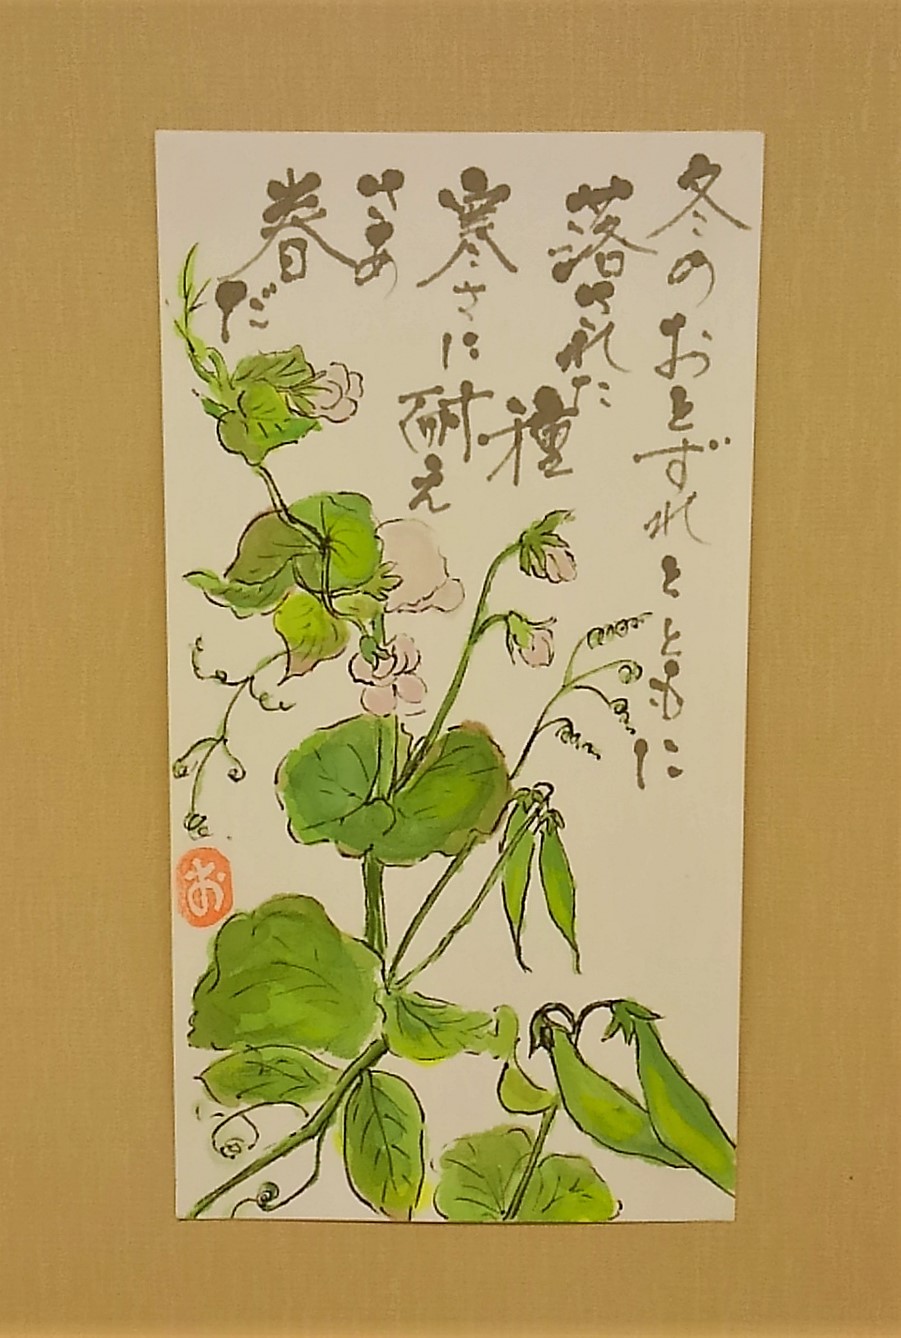 冬のおとずれとともに
落された種
寒さに耐え
さあ
春だ
お